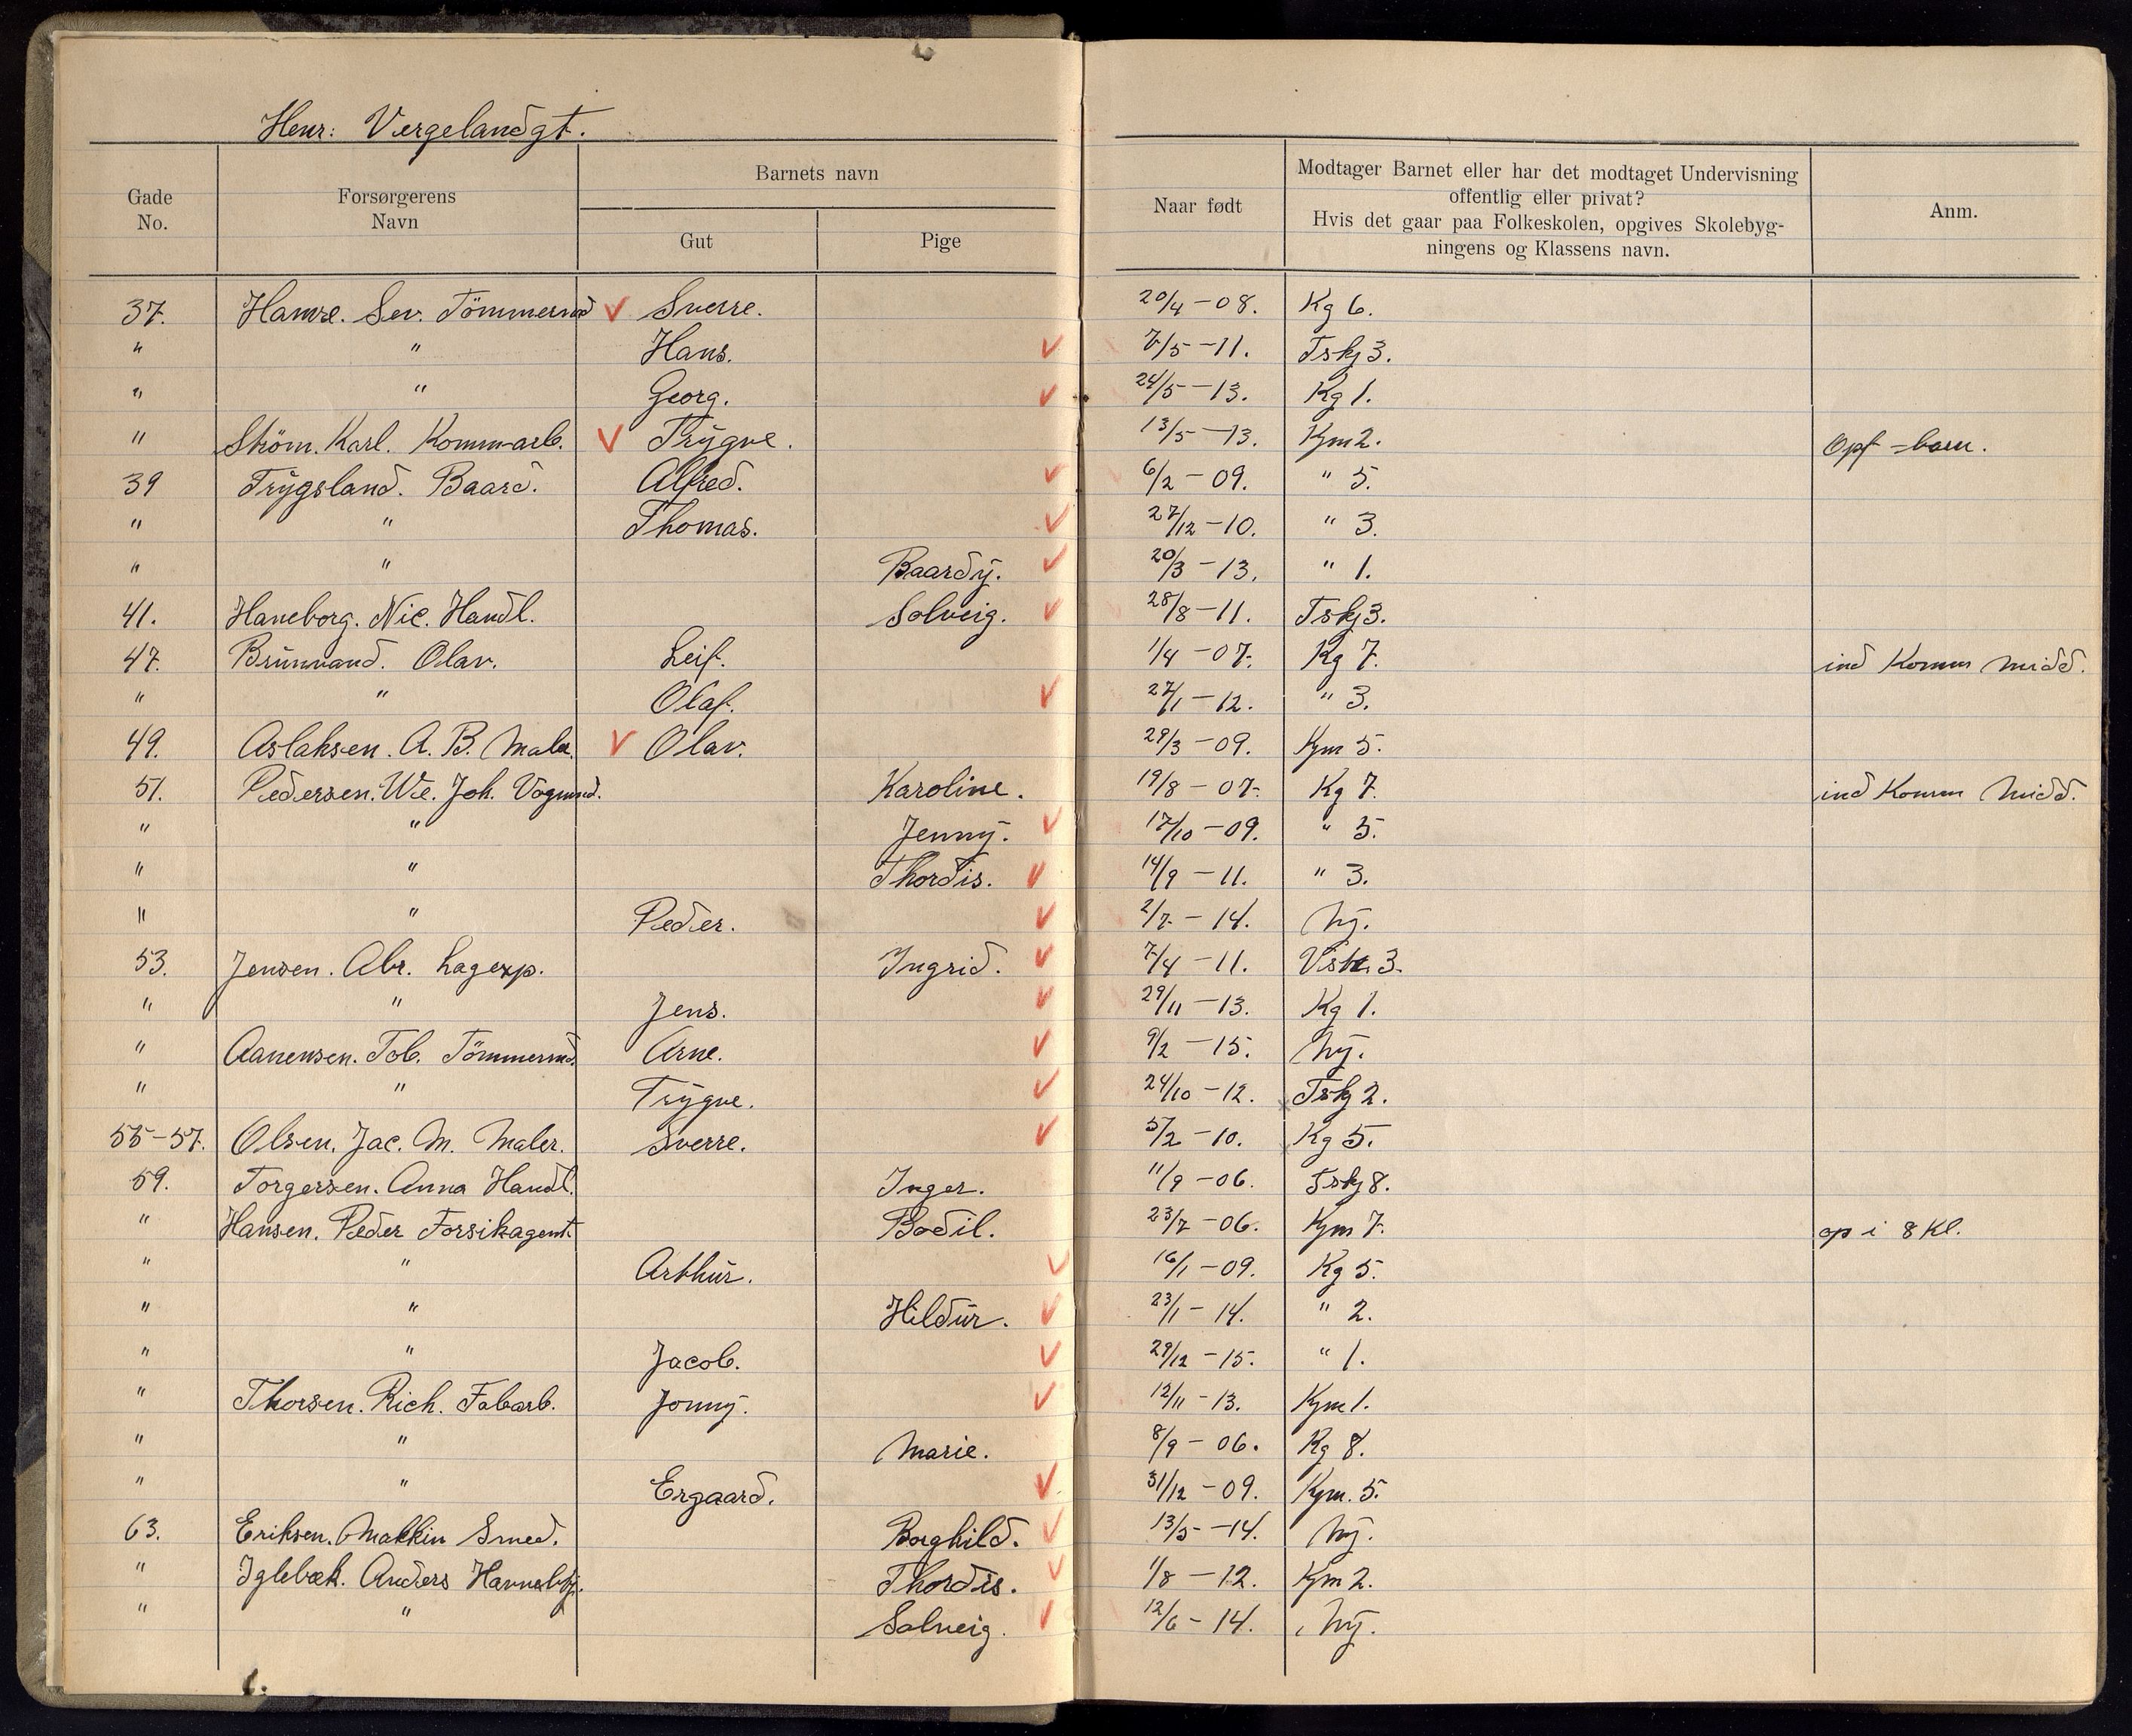 Henr: Vergelandgt.
Gade No. Forsørgerens Navn Barnets navn Gut Pige Naar født Modtager Barnet eller har det modtaget Undervisning offentlig eller privat? Hvis det gaar paa Folkeskolen, opgives Skolebyg-ningens og Klassens navn. Anm.
37. Hamre. Sev. Tömmermd Sverre. 20/4 - 08. Kg 6.
" " Hans. 7/5 - 11. Tskj 3.
" " Georg. 24/5 - 13. Kg 1.
" Ström. Karl. Kommarb. Trygve. 13/5 - 13. Kjm 2. Opf = barn.
39 Trygsland. Baard. Alfred. 6/2 - 09. " 5.
" " Thomas. 27/12 - 10. " 3.
" " Baardy. 20/3 - 13. " 1.
41. Haneborg. Nic. Handl. Solveig. 28/8 - 11. Tskj 3.
47. Brunvand. Olav. Leif. 1/4 - 07. Kg 7. ind Komm Midd.
" " Olaf. 27/1 - 12. " 3.
49. Aslaksen. A. B. Maler. Olav. 29/3 - 09. Kjm 5.
51. Pedersen. We. Joh. Vognmd. Karoline. 19/8 - 07. Kg 7. ind Komm Midd.
" " Jenny. 17/10 - 09. " 5.
" " Thordis. 14/9 - 11. " 3.
" " Peder. 2/7 - 14. Ny.
53. Jensen. Abr. Lagexp. Ingrid. 7/4 - 11. Vsk. 3.
" " Jens. 29/11 - 13. Kg 1.
" Aanensen. Tob. Tömmermd. Arne. 9/2 - 15. Ny.
" " Trygve. 24/10 - 12. Tskj 2.
55-57. Olsen. Jac. M. Maler. Sverre. 5/2 - 10. Kg 5.
59. Torgersen. Anna Handl. Inger. 11/9 - 06. Tskj 8.
" Hansen. Peder Forsikagent. Bodil. 23/7 - 06. Kjm 7. op i 8 Kl.
" " Arthur. 16/1 - 09. Kg 5.
" " Hildur. 23/1 - 14. " 2.
" " Jacob. 29/12 - 15. " 1.
" Thorsen. Rich. Fabarb. Jonny. 12/11 - 13. Kjm 1.
" " Marie. 8/9 - 06. Kg 8.
" " Ergaard. 31/12 - 09. Kjm. 5.
63. Eriksen. Makkin Smed. Borghild. 13/5 - 14. Ny.
" Iglebæk. Anders Thordis. 1/8 - 12. Kjm 2.
" " Solveig. 12/6 - 14. Ny.